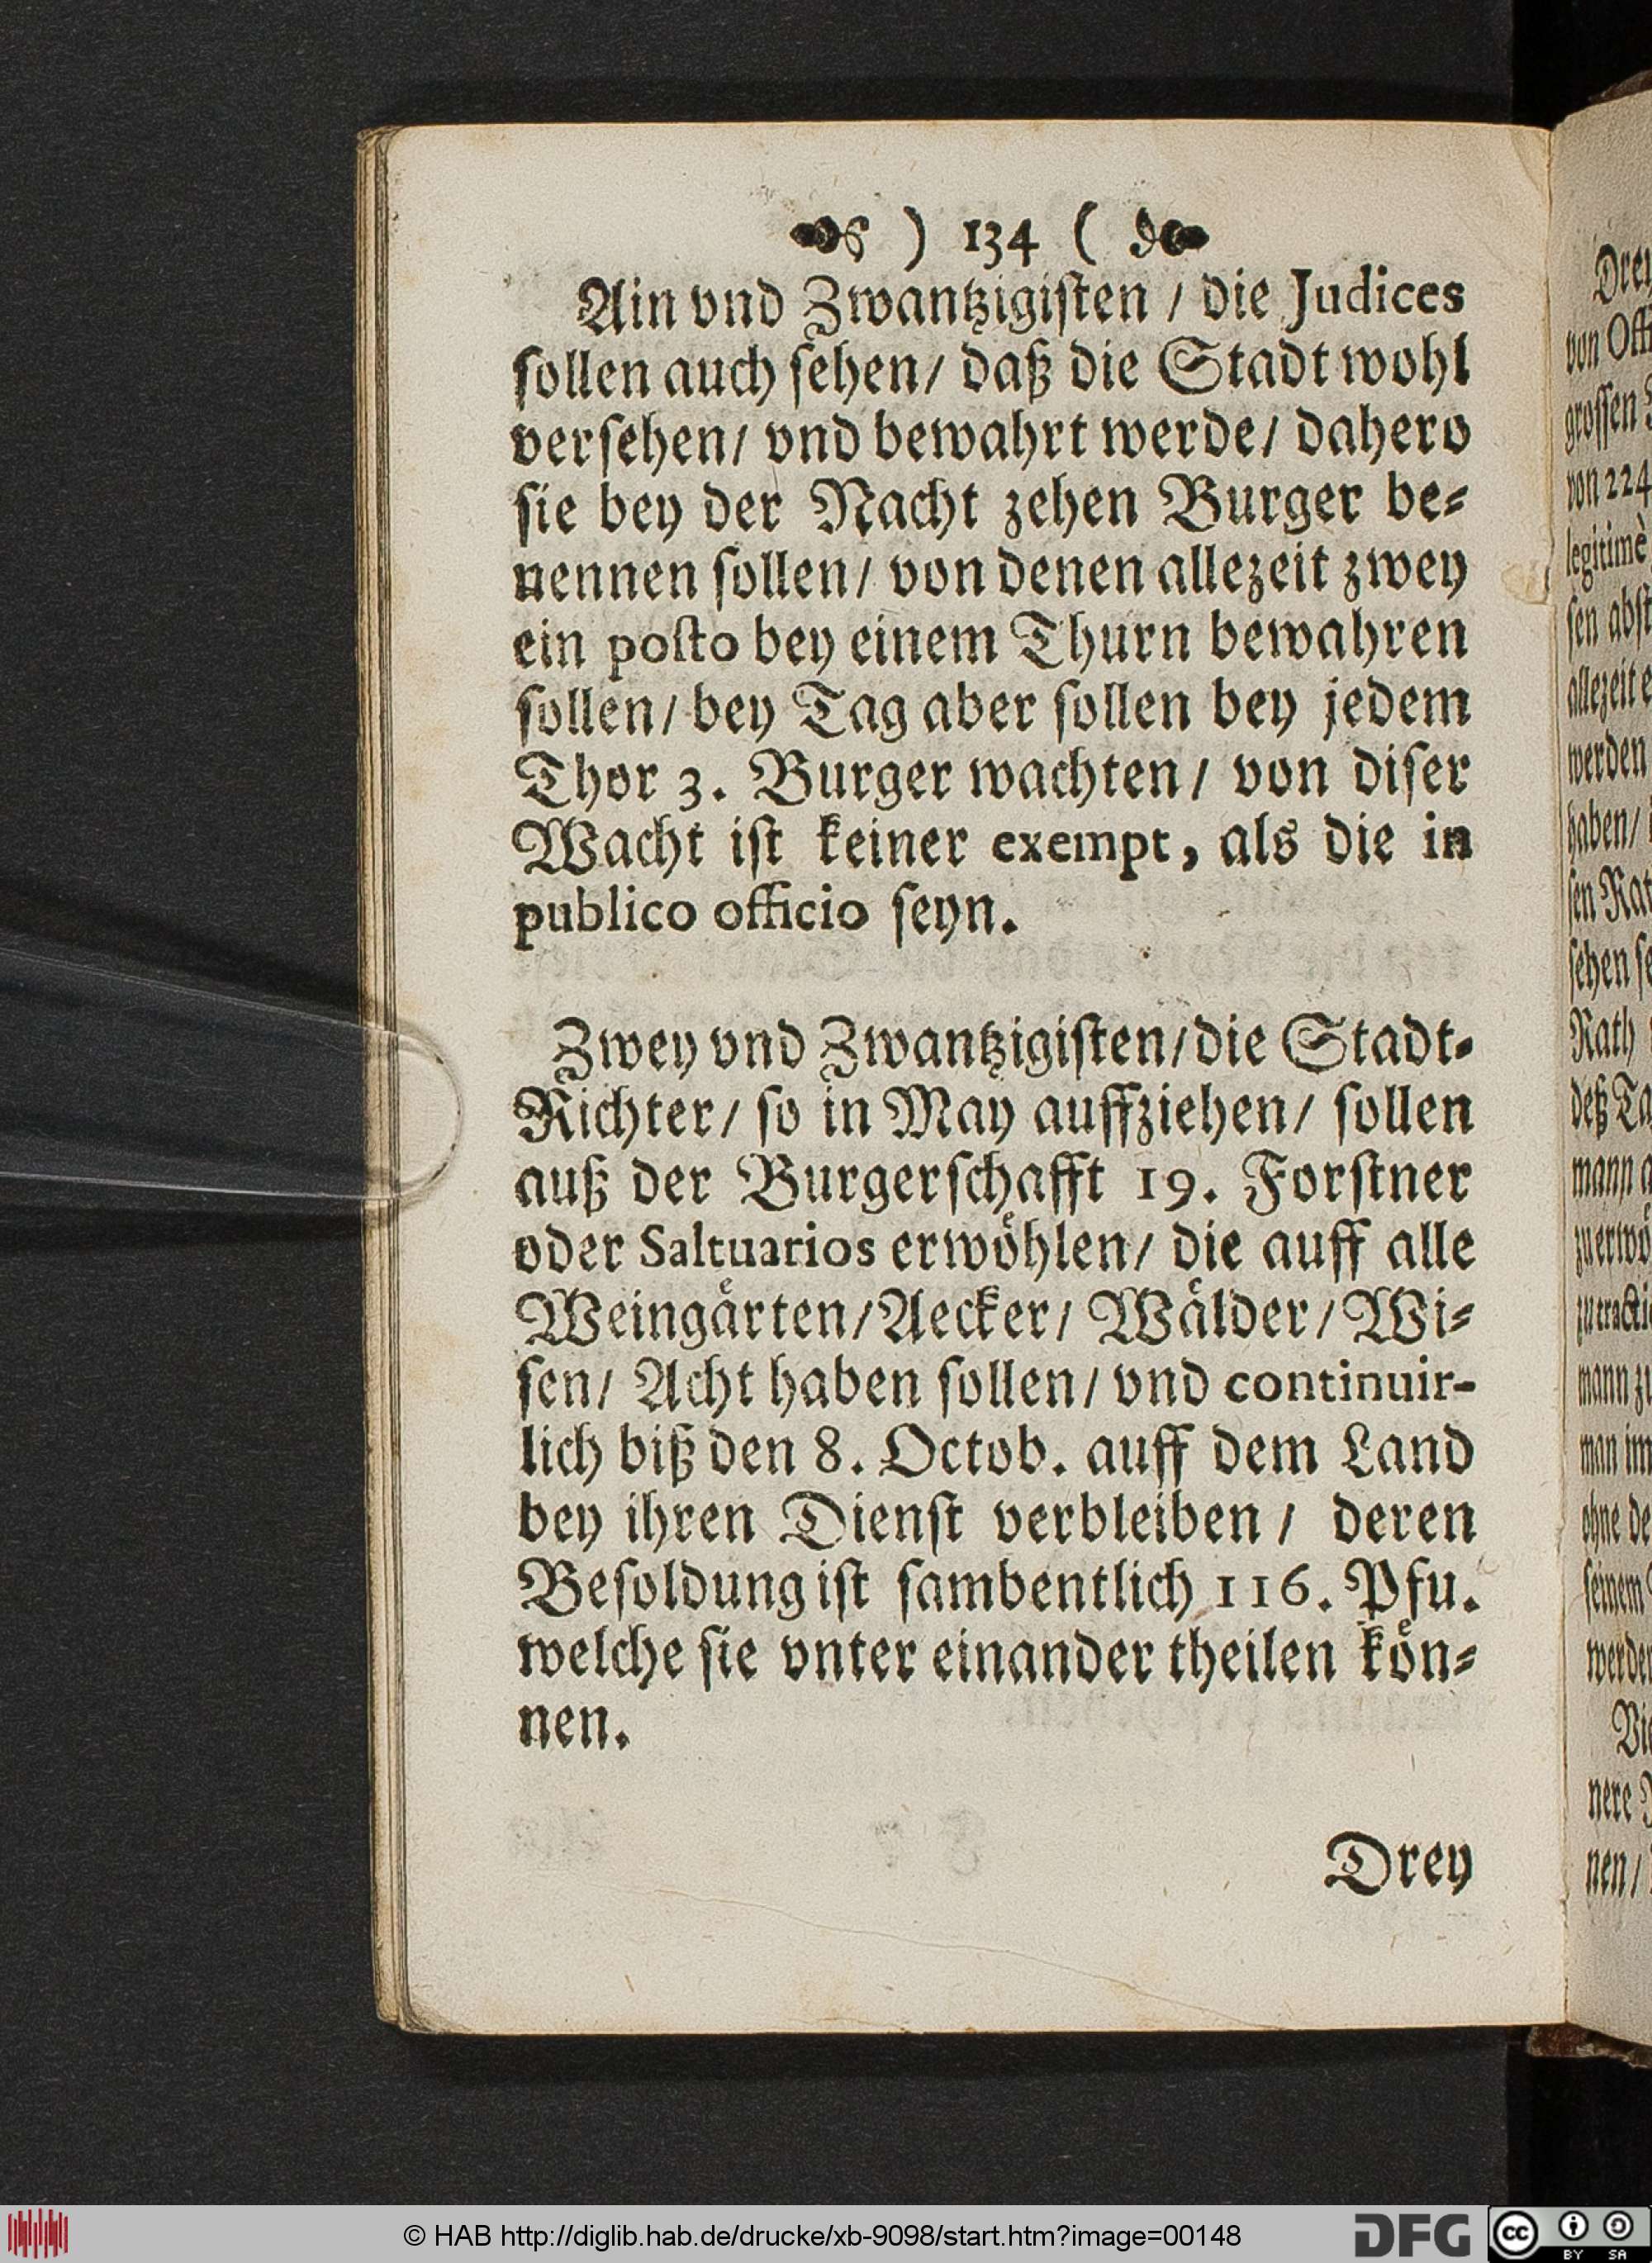 ) 134 (
Ain vnd Zwantzigisten / die Judices
sollen auch sehen/ daß die Stadt wohl
versehen/ vnd bewahrt werde/ dahero
sie bey der Nacht zehen Burger be-
nennen sollen/ von denen allezeit zwey
ein posto bey einem Thurn bewahren
sollen/ bey Tag aber sollen bey jedem
Thor 3. Burger wachten/ von diser
Wacht ist keiner exempt, als die in
publico officio seyn.
Zwey vnd Zwantzigisten/die Stadt-
Richter/ so in May auffziehen/ sollen
auß der Burgerschafft 19. Forstner
oder Saltuarios erwöhlen/ die auff alle
Weingärten/Aecker/ Wälder/Wi-
sen/ Acht haben sollen/ vnd continuir-
lich biß den 8. Octob. auff dem Land
bey ihren Dienst verbleiben / deren
Besoldung ist sambentlich 116. Pfu.
welche sie vnter einander theilen kön-
nen.
Drey
von
grossen
von 224
legitimè
sen
werden
haben/
sehen
Rath
deß
mann
man
seinem
nere
nen/
© HAB http://diglib.hab.de/drucke/xb-9098/start.htm?image=00148
DFG
cc
BY SA